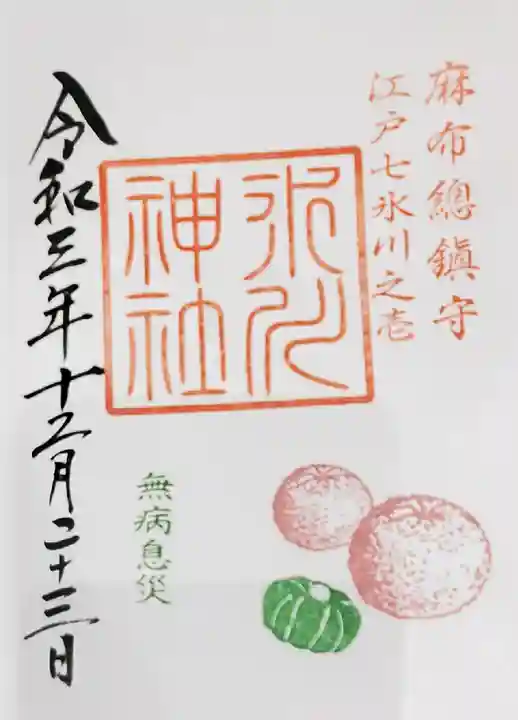 麻布總鎭守
江戸七氷川之壱
氷川
神社
無病息災
令和三年十二月二十三日